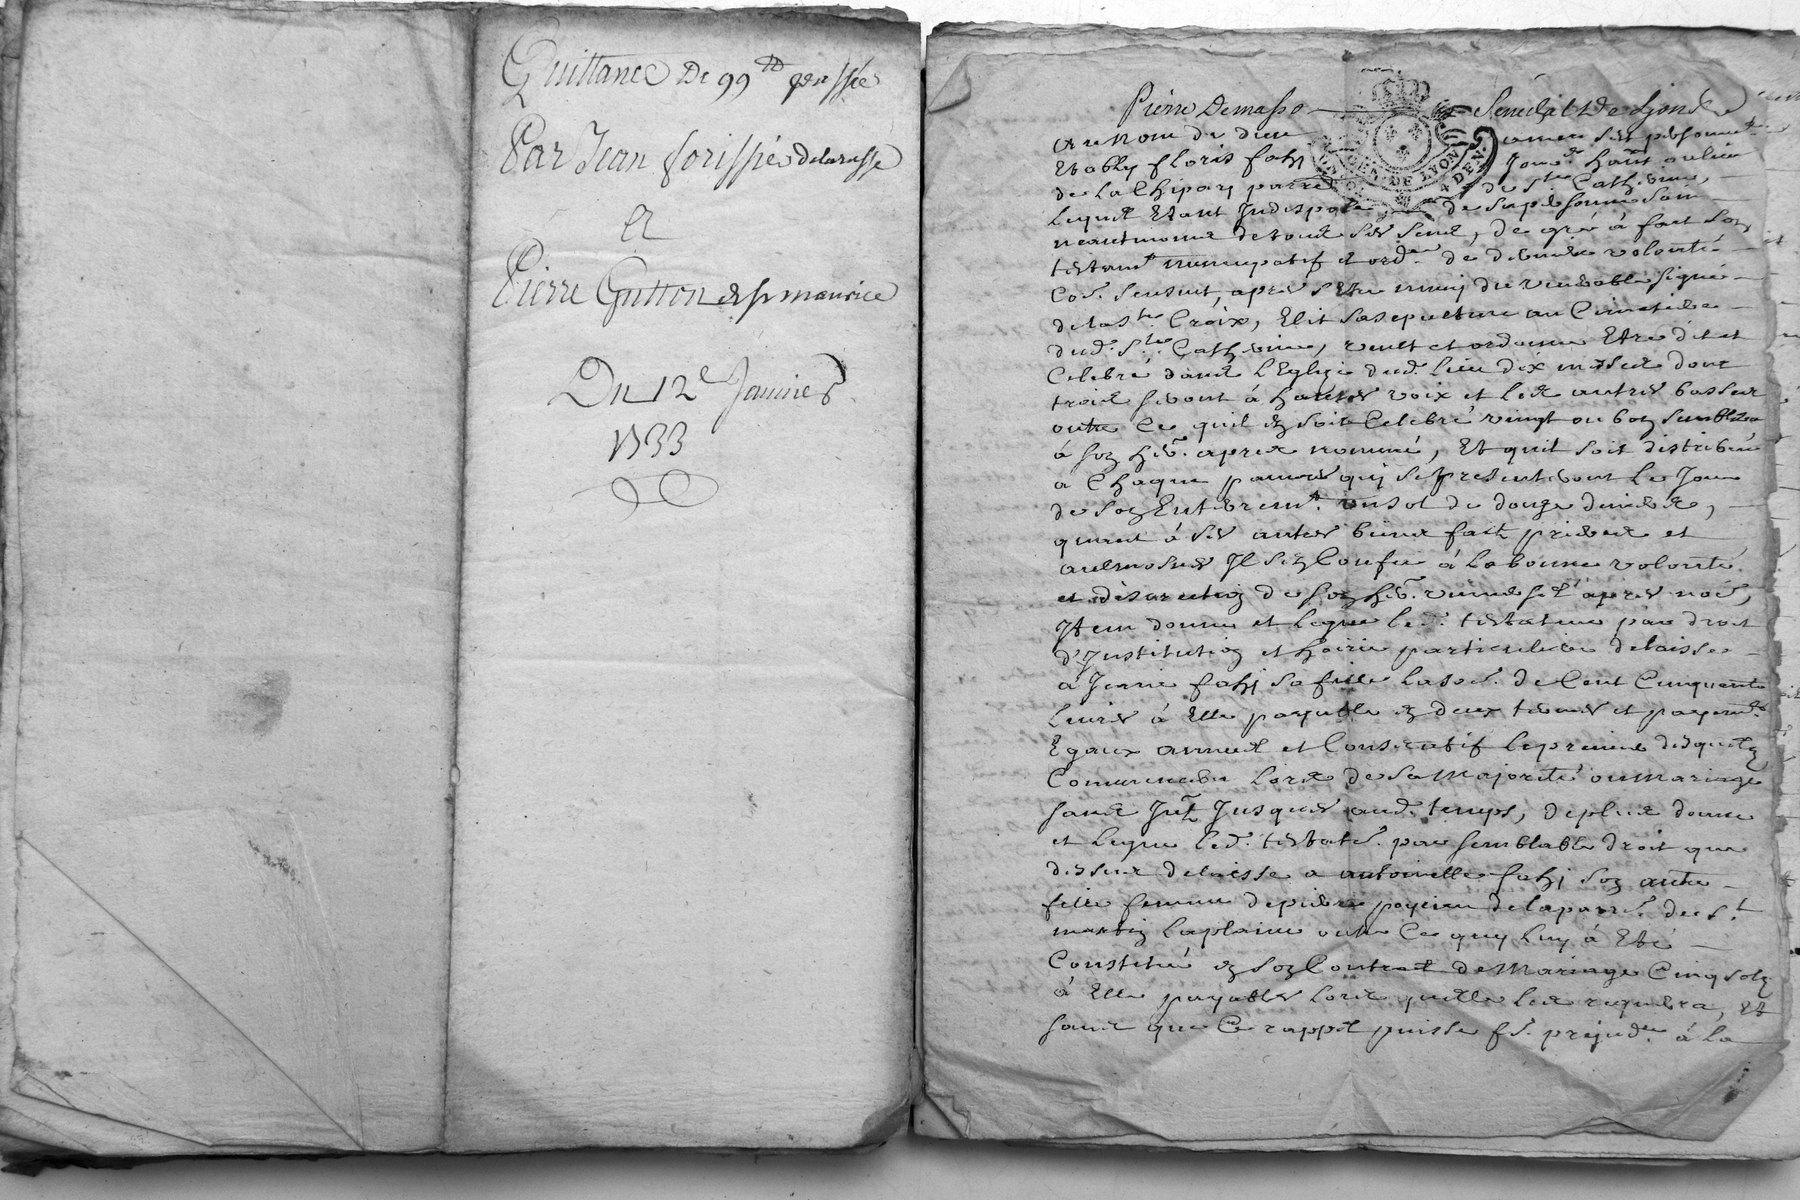 Quittance De 99ᵗᵗ
Par Jean forissier delarasse
Et
Pierre Gutton de st maurice
Du 12ᵉ Janvier
1733
Pierre Demasso Senechal de Lyon
Au Nom de dieu amen
Etably floris fahj
de la Chipary parre de Ste Catherine,
Lequel Etant Indisposé de sa personne sain
neantmoins de tous ses sens, de gré à fait son
testamt nuncupatif et ordce de derniere volonté
Co. sensuit, apres s'etre muny du venerable signe
de la Ste Croix, Elit sa sepulture au Cimetiere
dud. Ste Catherine, veult et ordonne Etre dit et
Celebré dans L'Eglise dud lieu dix messes dont
trois seront à hautes voix et les autres basses
outre Ce quil en soit Celebré vingt ou bon semblera
à son her. apres nommé, Et quil soit distribué
a Chaque pauvre qui se presenteront Le Jour
de son Enterremt. un sol de douze deniers,
quant à ses autres biens faits prieres et
aulmosnes Il s'en Confie à la bonne volonté
et discretion de son her. universel apres noé,
Item donne et legue led. testateur par droit
d'Institution et hoirie particuliere delaisse
à Jeane fahj sa fille la so. de Cent Cinquante
Livres à Elle payable en deux termes et payemts
Egaux annuels et Consecutifs le premier desquels
Commencera lors de sa Majorité ou Mariage
sans Int Jusques aud. temps, de plus donne
et legue led. testatr. par semblable droit que
dessus delaisse a antoinette fahj son autre
fille femme de pierre payeian de la parre. de St
martin Laplaine outre Ce quy luy à Eté
Constitué en son Contract de Mariage Cinq sols
à Elle payables lors quelle les requerra, Et
sans que Ce rappel puisse fe. prejude. à la
GEN. DE LYON
4 DEN.